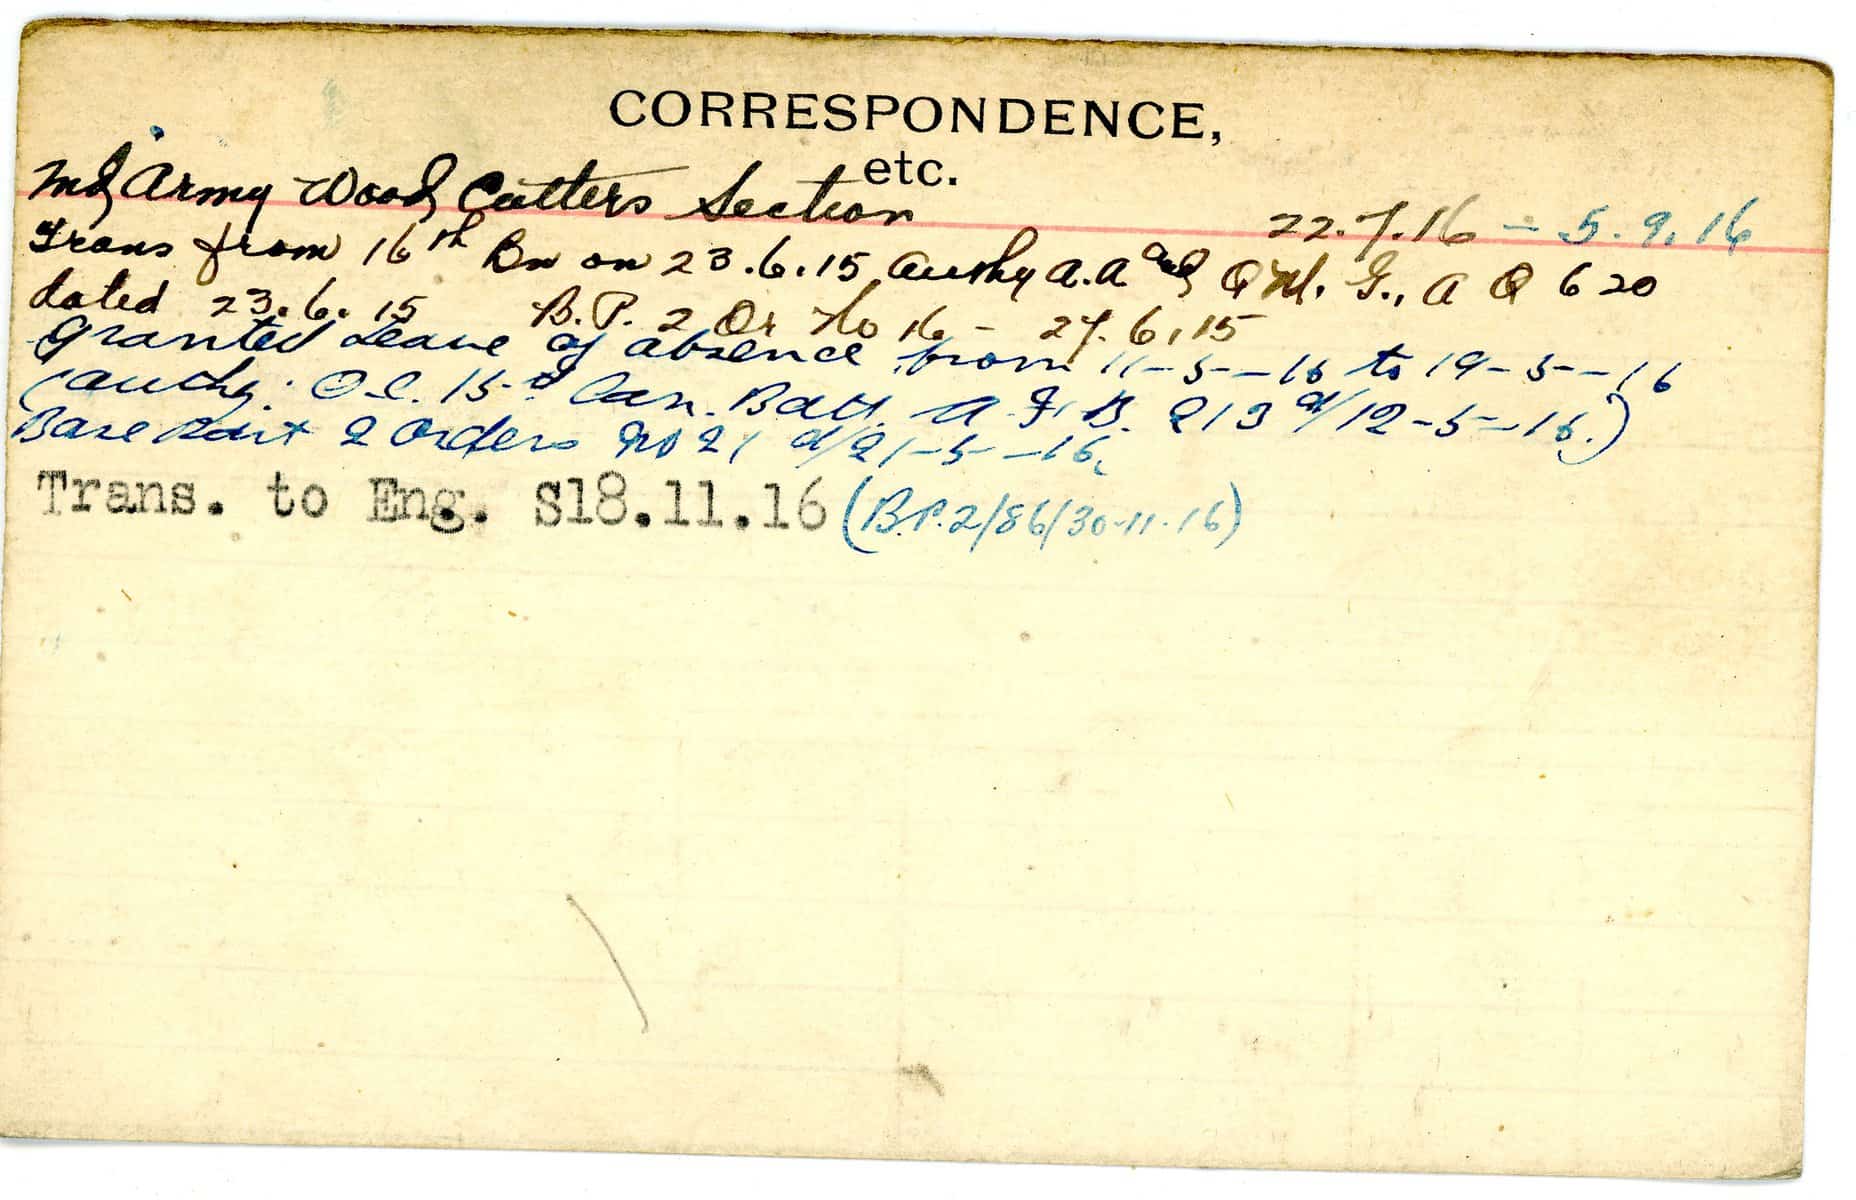 CORRESPONDENCE,
etc.
Army Wood Cutters Section 22.7.16 - 5.9.16
Trans from 16th Bn on 23.6.15 Authy A.A and Q M. G., A Q 620
dated 23.6.15 B.P. 2 Or No 16 - 27.6.15
Granted Leave of absence from 11-5-16 to 19-5-16
(Authy. O.C. 15th Can. Batt. A.F.B. 213 d/12-5-16.)
Base Part 2 Orders No 21 d/21-5-16.
Trans. to Eng. S18.11.16 (B.P.2/86/30-11-16)